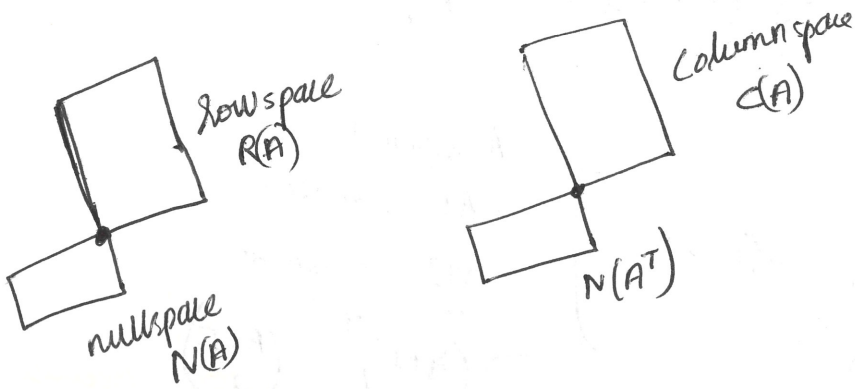 rowspace
R(A)
nullspace
N(A)
Column space
C(A)
N(A^T)